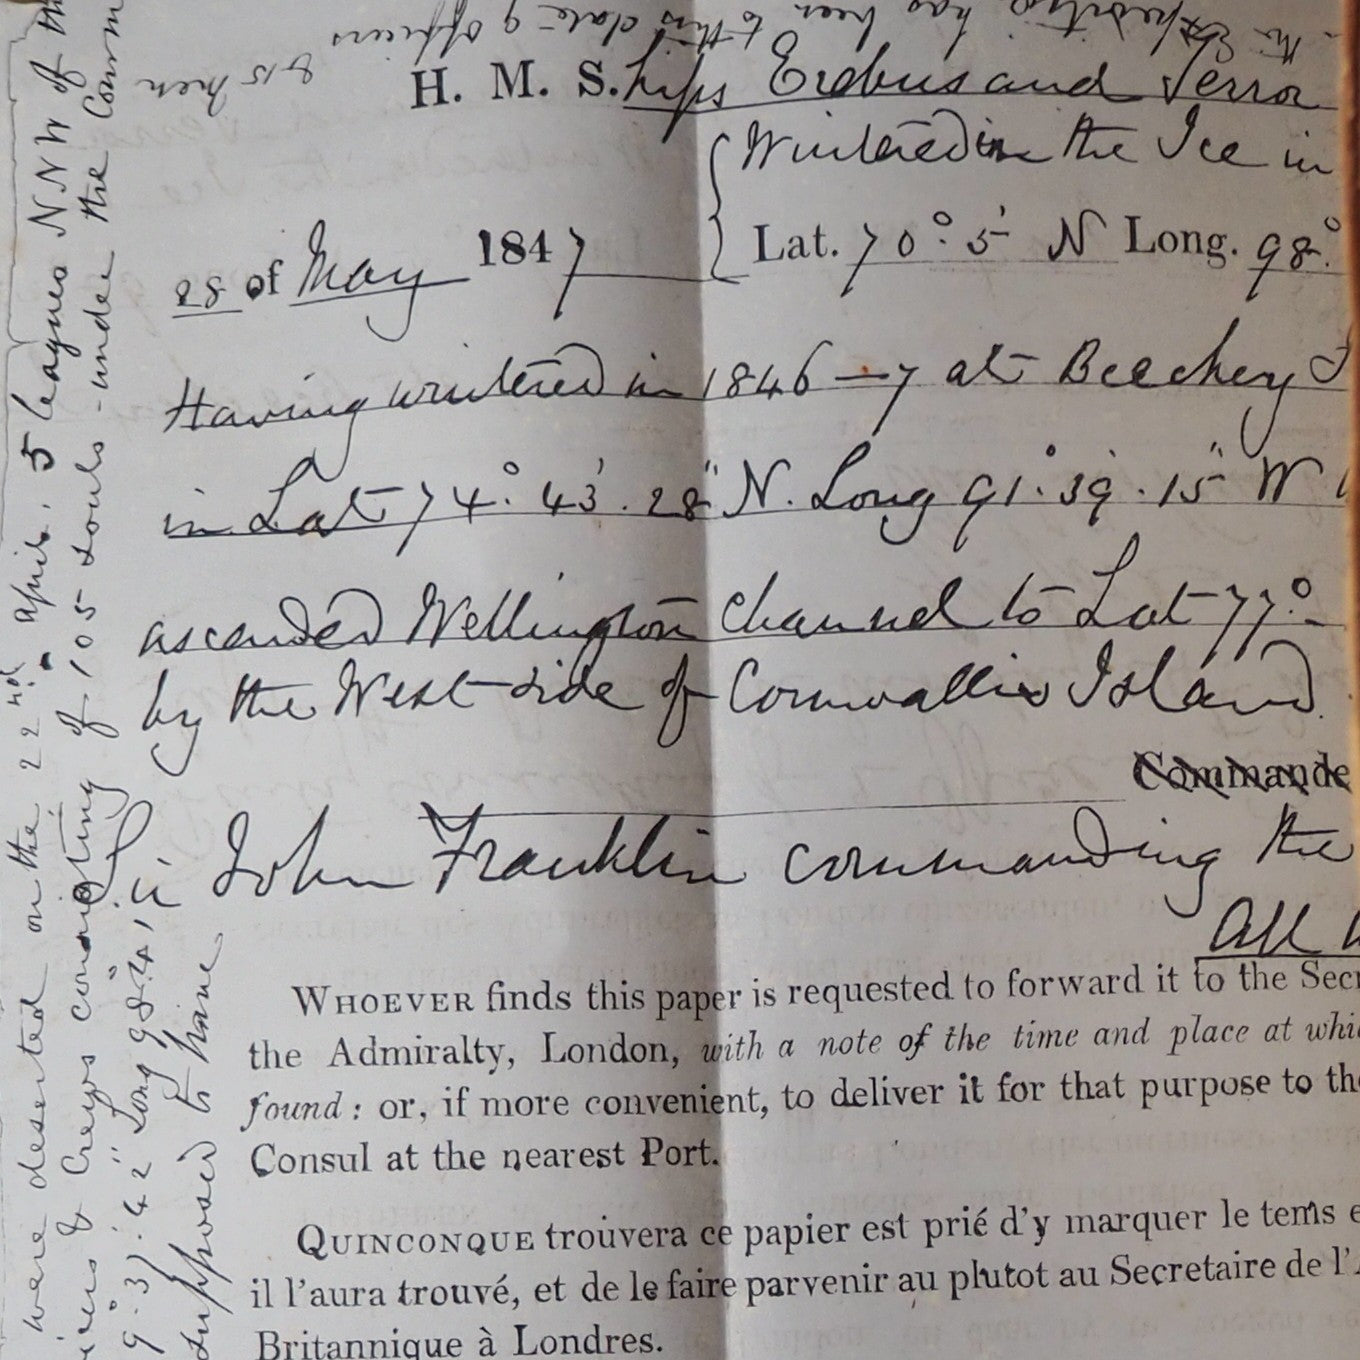 H. M. S.hips Erebus and Terror
Wintered in the Ice in
28 of May 1847 Lat. 70° 5' N Long. 98°
Having wintered in 1846-7 at Beechey I
in Lat 74° 43' 28" N. Long 91° 39' 15" W
ascended Wellington channel to Lat 77°
by the West side of Cornwallis Island.
Commande
Sir John Franklin commanding the
All w
WHOEVER finds this paper is requested to forward it to the Secr
the Admiralty, London, with a note of the time and place at whi
found: or, if more convenient, to deliver it for that purpose to the
Consul at the nearest Port.
QUINCONQUE trouvera ce papier est prié d'y marquer le tems e
il l'aura trouvé, et de le faire parvenir au plutot au Secretaire de l'A
Britannique à Londres.
were deserted on the 22nd April. 5 leagues NNW of th
icers & Crews consisting of 105 souls - under the Comm
9° 37' 42" Long 98° 41'
supposed to have
Expedition has been to this date 9 officers
& 15 men